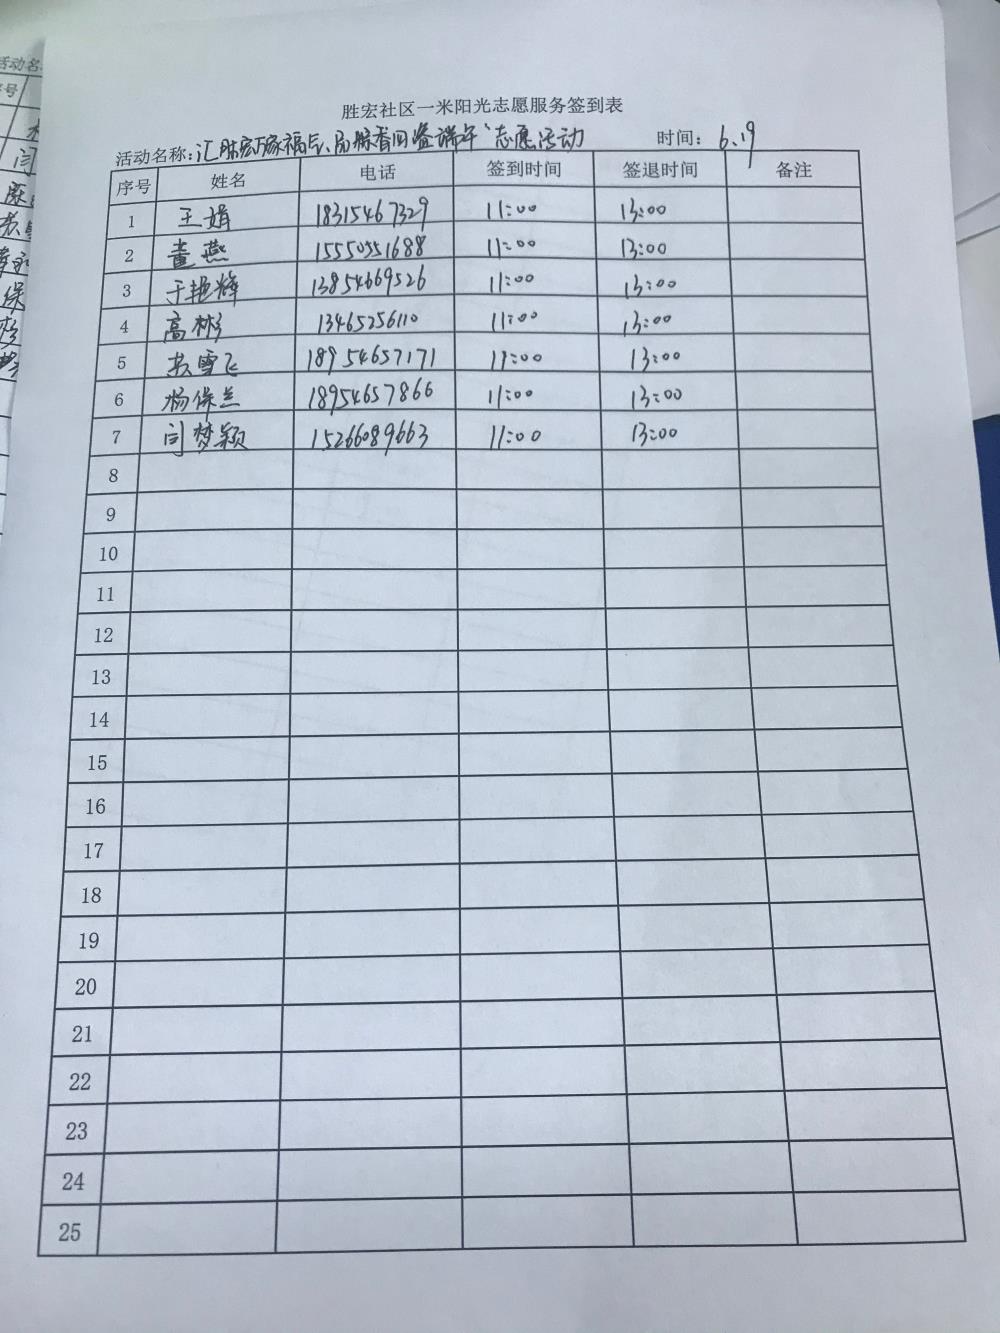 胜宏社区一米阳光志愿服务签到表
活动名称：汇胜宏万家福气、品粽香四溢端午"志愿活动 时间：6.19
序号 姓名 电话 签到时间 签退时间 备注
1 王娟 18315467329 11:00 13:00
2 董燕 15550551688 11:00 13:00
3 于艳辉 13854669526 11:00 13:00
4 高彬 13465256110 11:00 13:00
5 苏雪飞 18954657171 11:00 13:00
6 杨保兰 18954657866 11:00 13:00
7 闫梦颖 15266089663 11:00 13:00
8
9
10
11
12
13
14
15
16
17
18
19
20
21
22
23
24
25